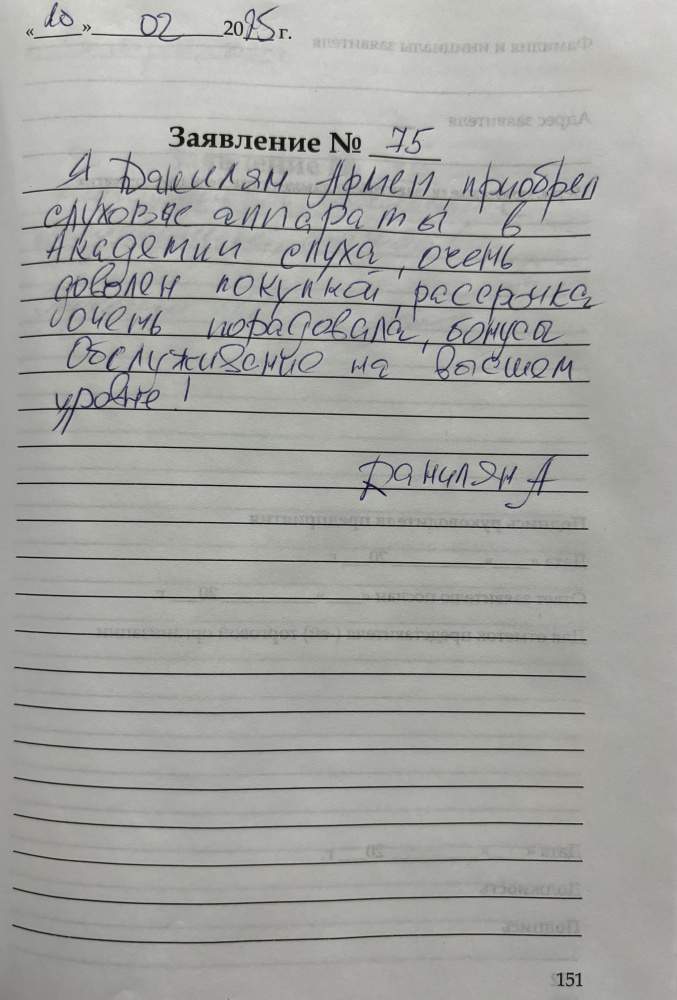 «20» 02 2025 г.
Заявление № 75
Я Данилян Армен, приобрел
слуховые аппараты в
Академии слуха, очень
доволен покупкой, рассрочка
очень порадовала, бонусы
Обслуживание на высшем
уровне!
Данилян А
151